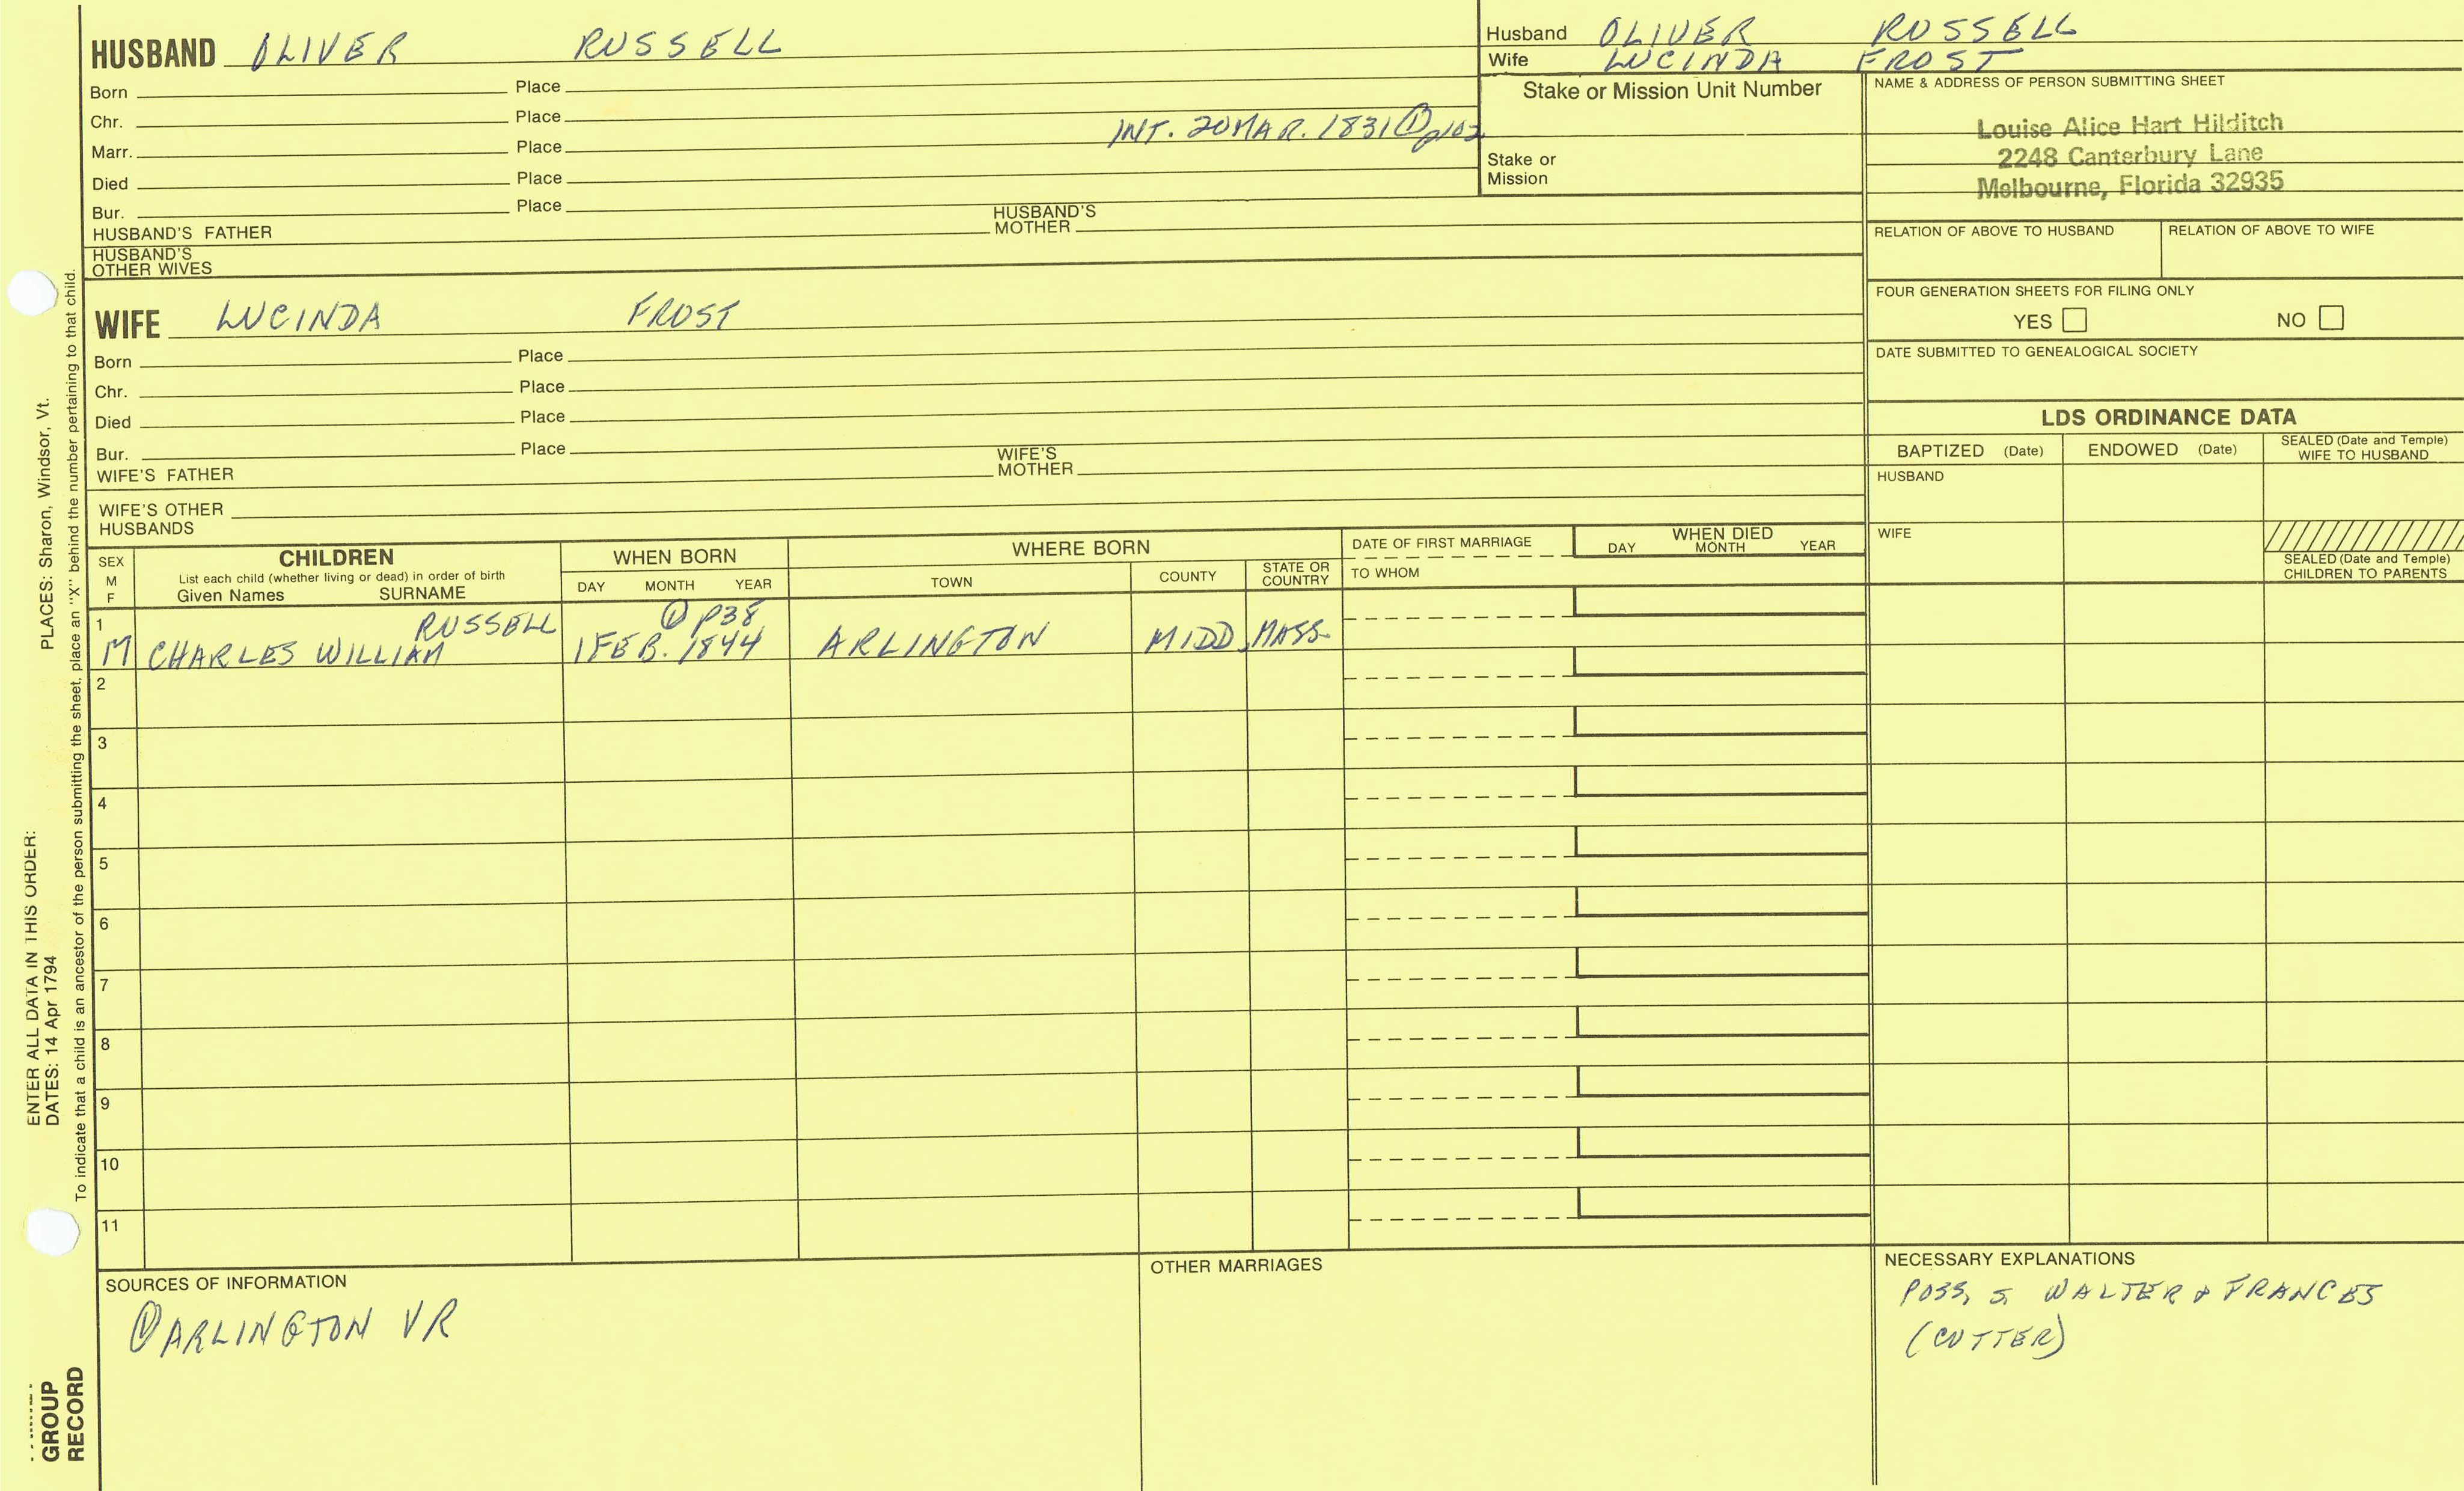 HUSBAND OLIVER RUSSELL
Born Place
Chr. Place
Marr. Place INT. 20 MAR. 1831 ① p102
Died Place
Bur. Place
HUSBAND'S FATHER HUSBAND'S MOTHER
HUSBAND'S OTHER WIVES
Husband OLIVER RUSSELL
Wife LUCINDA FROST
Stake or Mission Unit Number
Stake or Mission
NAME & ADDRESS OF PERSON SUBMITTING SHEET
Louise Alice Hart Hilditch
2248 Canterbury Lane
Melbourne, Florida 32935
RELATION OF ABOVE TO HUSBAND RELATION OF ABOVE TO WIFE
FOUR GENERATION SHEETS FOR FILING ONLY
YES NO
DATE SUBMITTED TO GENEALOGICAL SOCIETY
WIFE LUCINDA FROST
Born Place
Chr. Place
Died Place
Bur. Place
WIFE'S FATHER WIFE'S MOTHER
WIFE'S OTHER HUSBANDS
LDS ORDINANCE DATA
BAPTIZED (Date) ENDOWED (Date) SEALED (Date and Temple) WIFE TO HUSBAND
HUSBAND
WIFE
SEALED (Date and Temple) CHILDREN TO PARENTS
SEX M F
CHILDREN
List each child (whether living or dead) in order of birth
Given Names SURNAME
WHEN BORN
DAY MONTH YEAR
WHERE BORN
TOWN COUNTY STATE OR COUNTRY
DATE OF FIRST MARRIAGE
TO WHOM
WHEN DIED
DAY MONTH YEAR
1 RUSSELL ① P38
M CHARLES WILLIAM 1 FEB. 1844 ARLINGTON MIDD, MASS.
2
3
4
5
6
7
8
9
10
11
SOURCES OF INFORMATION
① ARLINGTON VR
OTHER MARRIAGES
NECESSARY EXPLANATIONS
POSS, S, WALTER & FRANCES
(CUTTER)
ENTER ALL DATA IN THIS ORDER:
DATES: 14 Apr 1794 PLACES: Sharon, Windsor, Vt.
To indicate that a child is an ancestor of the person submitting the sheet, place an "X" behind the number pertaining to that child.
GROUP
RECORD